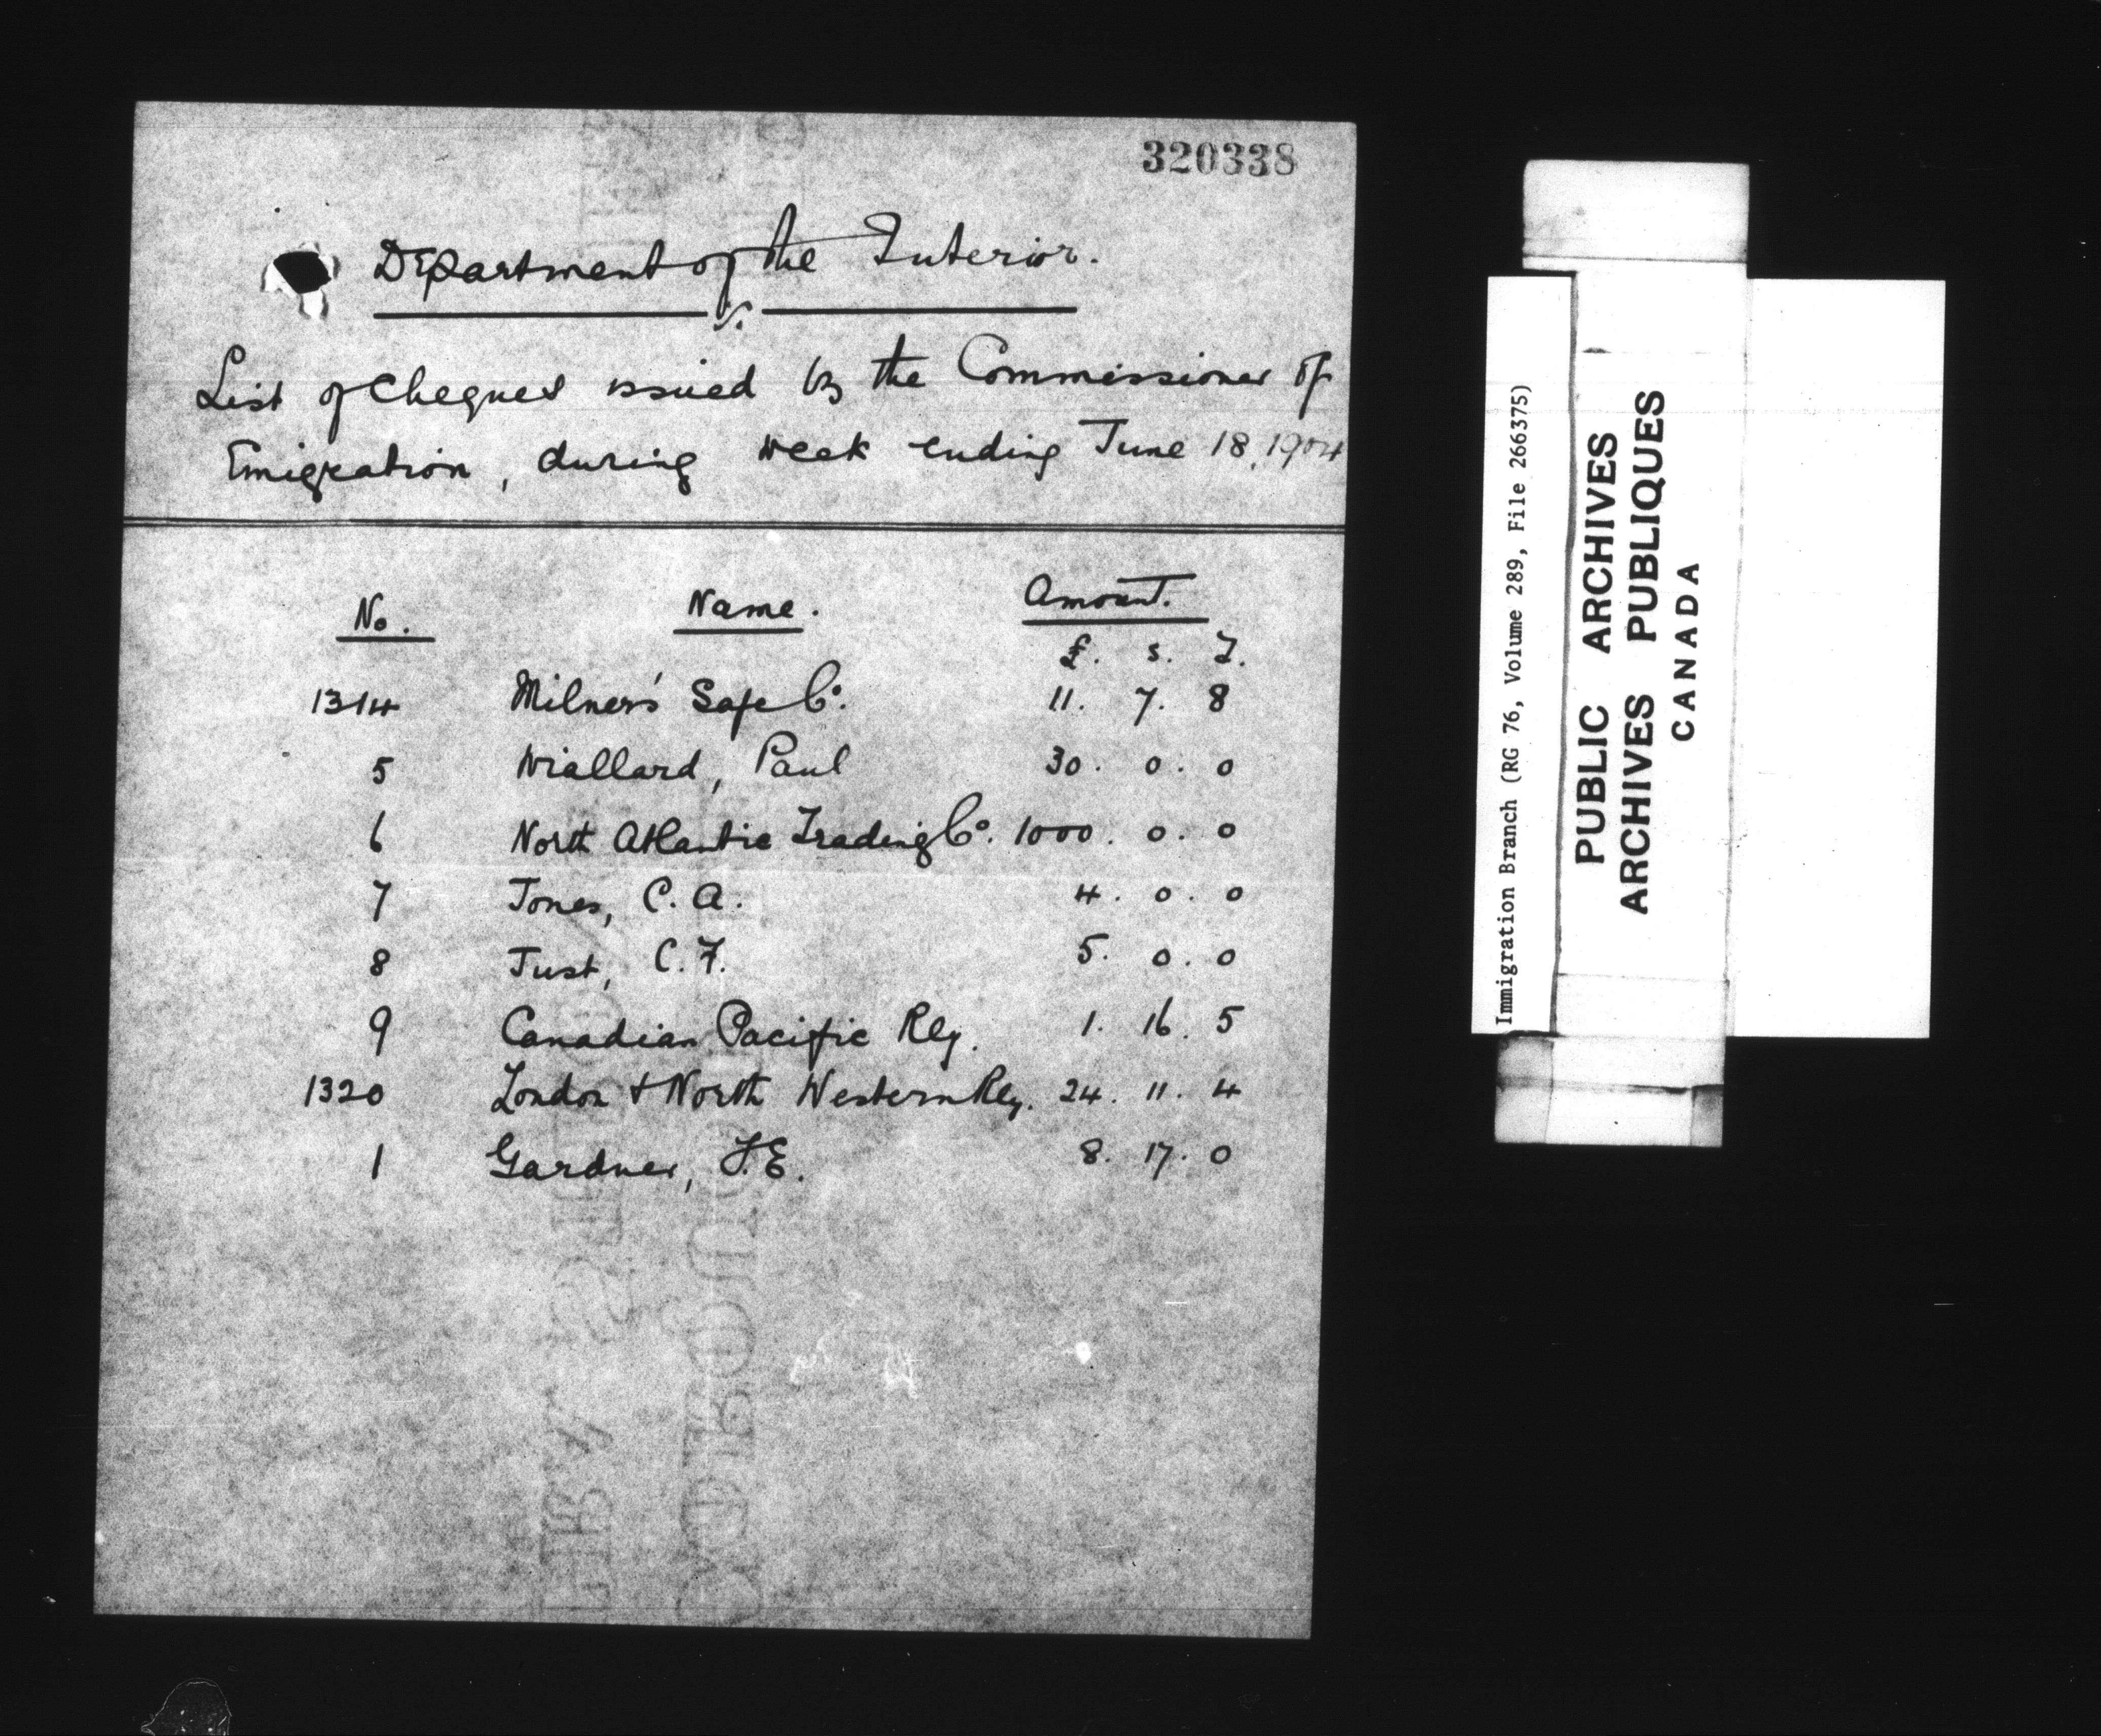 320338
Department of the Interior.
List of Cheques issued by the Commissioner of
Emigration, during week ending June 18, 1904
No. Name. Amount.
£. s. d.
1314 Milner's Safe Co. 11. 7. 8
5 Wiallard, Paul 30. 0. 0
6 North Atlantic Trading Co. 1000. 0. 0
7 Jones, C. A. 4. 0. 0
8 Just, C. F. 5. 0. 0
9 Canadian Pacific Rly. 1. 16. 5
1320 London & North Western Rly. 24. 11. 4
1 Gardner, F. E. 8. 17. 0
Immigration Branch (RG 76, Volume 289, File 266375)
PUBLIC ARCHIVES
ARCHIVES PUBLIQUES
CANADA